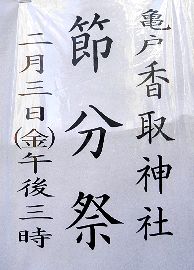 亀戸香取神社
節分祭
二月三日(金)午後三時